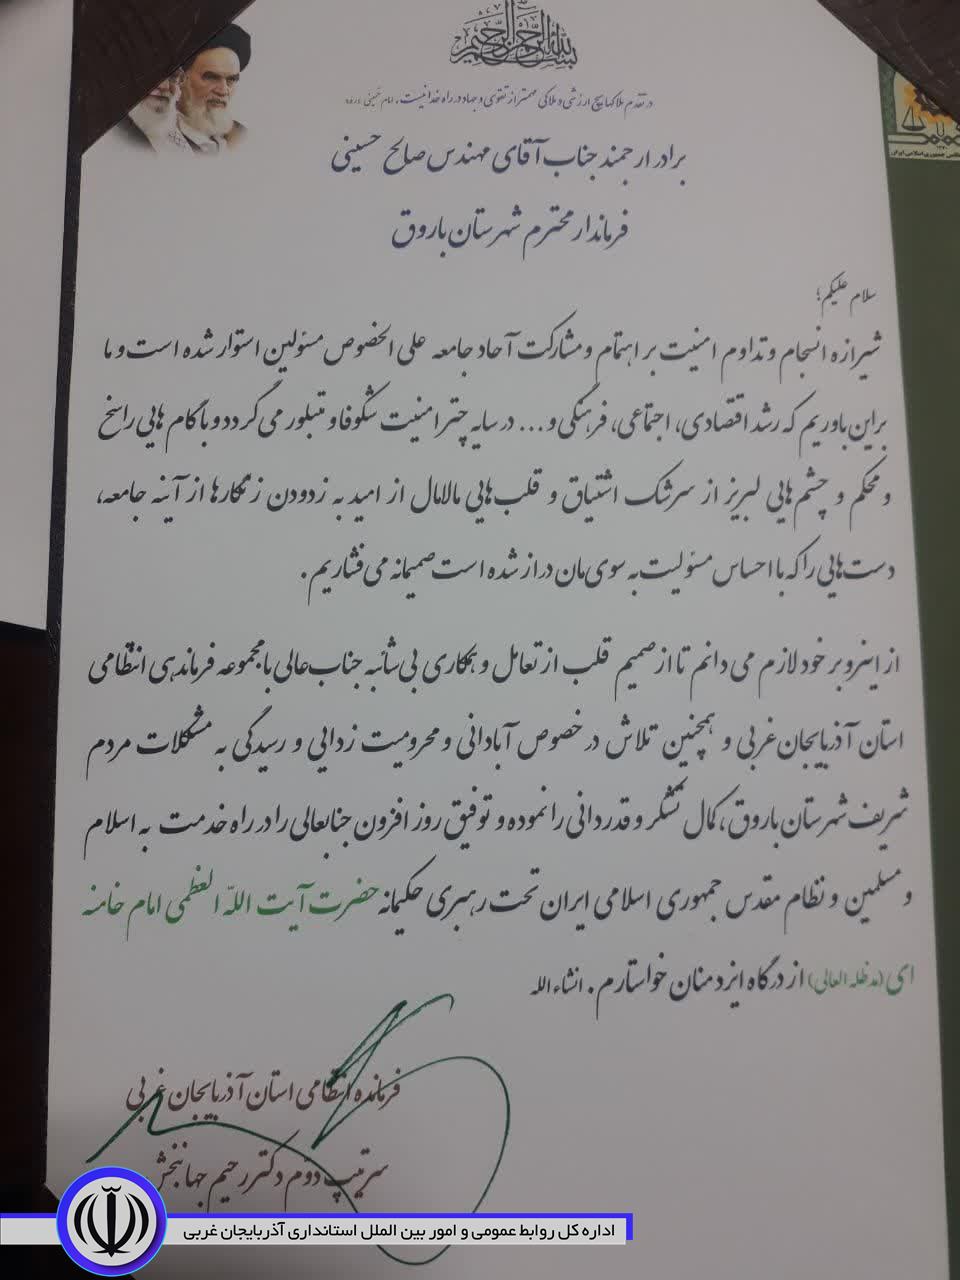 بسم الله الرحمن الرحیم
در تقدم ملاکها هیچ ارزشی و ملاکی مهمتر از تقوی و جهاد در راه خدا نیست. امام خمینی
برادر ارجمند جناب آقای مهندس صالح حسینی
فرماندار محترم شهرستان باروق
سلام علیکم؛
شیرازه انسجام و تداوم امنیت بر اهتمام و مشارکت آحاد جامعه علی الخصوص مسئولین استوار شده است و ما
براین باوریم که رشد اقتصادی، اجتماعی، فرهنگی و... در سایه چتر امنیت شکوفا و متبلور می گردد و با گام هایی راسخ
و محکم و چشم هایی لبریز از سرشک اشتیاق و قلب هایی مالامال از امید به زدودن زنگارها از آینه جامعه،
دست هایی را که با احساس مسئولیت به سوی مان دراز شده است صمیمانه می فشاریم.
از اینرو بر خود لازم می دانم تا از صمیم قلب از تعامل و همکاری بی شائبه جناب عالی با مجموعه فرماندهی انتظامی
استان آذربایجان غربی و همچنین تلاش در خصوص آبادانی و محرومیت زدایی و رسیدگی به مشکلات مردم
شریف شهرستان باروق، کمال تشکر و قدردانی را نموده و توفیق روز افزون جنابعالی را در راه خدمت به اسلام
و مسلمین و نظام مقدس جمهوری اسلامی ایران تحت رهبری حکیمانه حضرت آیت الله العظمی امام خامنه
ای (مدظله العالی) از درگاه ایزد منان خواستارم. انشاءالله
فرمانده انتظامی استان آذربایجان غربی
سرتیپ دوم دکتر رحیم جهانبخش
اداره کل روابط عمومی و امور بین الملل استانداری آذربایجان غربی